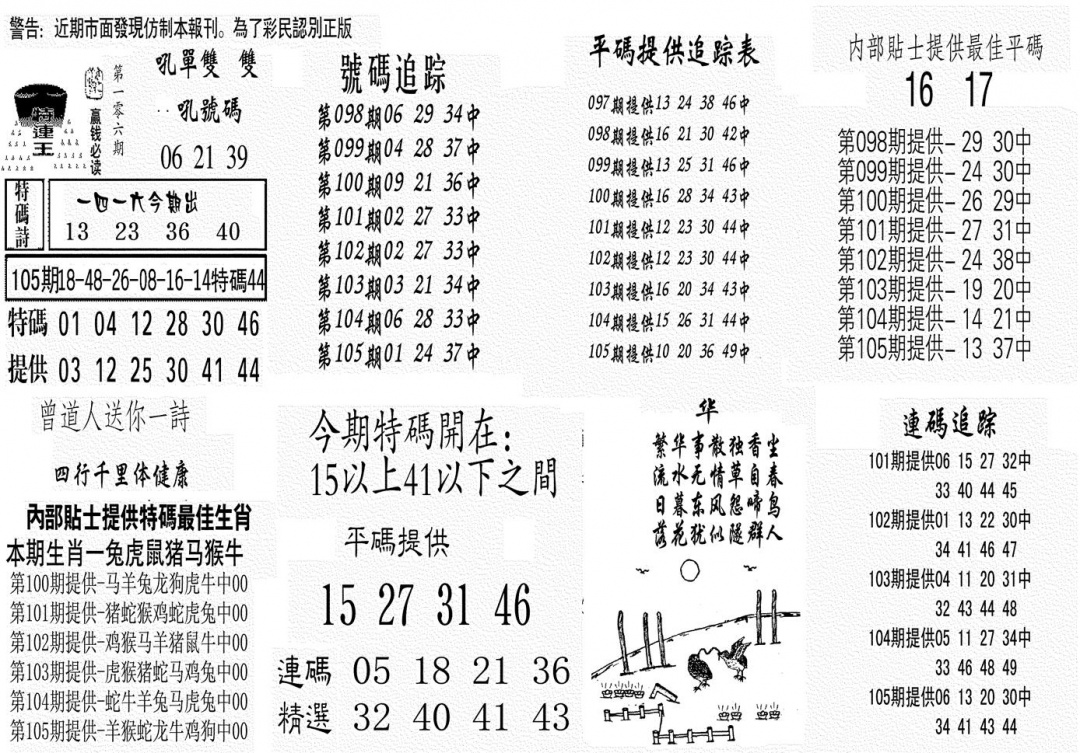 警告: 近期市面發現仿制本報刊。為了彩民認別正版
特連王
赢钱必读
第一零六期
吼單雙 雙
吼號碼
06 21 39
特碼詩
一四一六今期出
13 23 36 40
105期18-48-26-08-16-14特碼44
特碼 01 04 12 28 30 46
提供 03 12 25 30 41 44
號碼追踪
第098期06 29 34中
第099期04 28 37中
第100期09 21 36中
第101期02 27 33中
第102期02 27 33中
第103期03 21 34中
第104期06 28 33中
第105期01 24 37中
平碼提供追踪表
097期提供13 24 38 46中
098期提供16 21 30 42中
099期提供13 25 31 46中
100期提供16 28 34 43中
101期提供12 23 30 44中
102期提供12 23 30 44中
103期提供16 20 34 43中
104期提供15 26 31 44中
105期提供10 20 36 49中
内部貼士提供最佳平碼
16 17
第098期提供-29 30中
第099期提供-24 30中
第100期提供-26 29中
第101期提供-27 31中
第102期提供-24 38中
第103期提供-19 20中
第104期提供-14 21中
第105期提供-13 37中
曾道人送你一詩
四行千里体健康
內部貼士提供特碼最佳生肖
本期生肖一兔虎鼠猪马猴牛
第100期提供-马羊兔龙狗虎牛中00
第101期提供-猪蛇猴鸡蛇虎兔中00
第102期提供-鸡猴马羊猪鼠牛中00
第103期提供-虎猴猪蛇马鸡兔中00
第104期提供-蛇牛羊兔马虎兔中00
第105期提供-羊猴蛇龙牛鸡狗中00
今期特碼開在:
15以上41以下之間
平碼提供
15 27 31 46
連碼 05 18 21 36
精選 32 40 41 43
华
繁华事散独香尘
流水无情草自春
日暮东风怨啼鸟
落花犹似隧群人
連碼追踪
101期提供06 15 27 32中
33 40 44 45
102期提供01 13 22 30中
34 41 46 47
103期提供04 11 20 31中
32 43 44 48
104期提供05 11 27 34中
33 46 48 49
105期提供06 13 20 30中
34 41 43 44